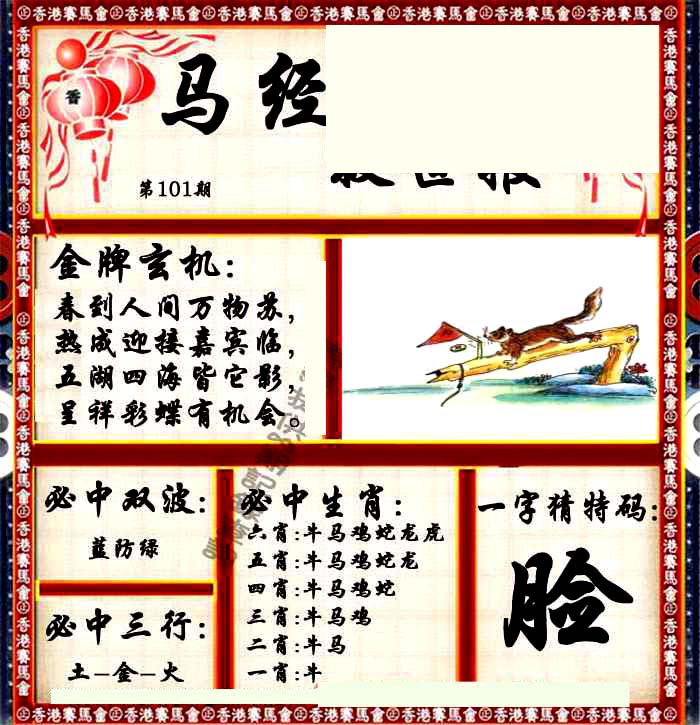 ㊣香港賽馬會㊣香港賽馬會㊣香港賽馬會㊣香港賽馬會㊣香港賽馬會㊣香港賽馬會㊣香港賽馬會㊣
马经
香
第101期
金牌玄机：
春到人间万物苏，
热成迎接嘉宾临，
五湖四海皆它影，
呈祥彩蝶有机会。
必中双波：
蓝防绿
必中三行：
土-金-火
必中生肖：
六肖:牛马鸡蛇龙虎
五肖:牛马鸡蛇龙
四肖:牛马鸡蛇
三肖:牛马鸡
二肖:牛马
一肖:牛
一字猜特码：
脸
㊣香港賽馬會㊣香港賽馬會㊣香港賽馬會㊣香港賽馬會㊣香港賽馬會㊣香港賽馬會㊣香港賽馬會㊣